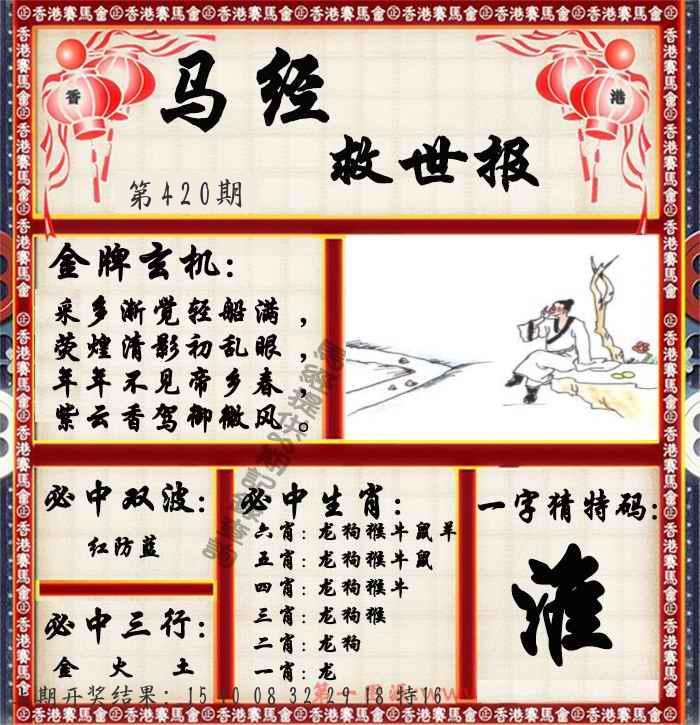 香港賽馬會
香 港
马经
救世报
第420期
金牌玄机：
采乡渐觉轻船满，
荧煌清影初乱眼，
年年不见帝乡春，
紫云香驾御微风。
必中双波：
红防蓝
必中三行：
金 火 土
必中生肖：
六肖：龙狗猴牛鼠羊
五肖：龙狗猴牛鼠
四肖：龙狗猴牛
三肖：龙狗猴
二肖：龙狗
一肖：龙
一字猜特码：
期开奖结果：15 10 08 32 29 18 特16